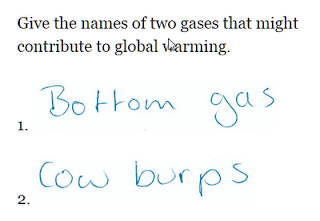 Give the names of two gases that might
contribute to global warming.
1. Bottom gas
2. Cow burps